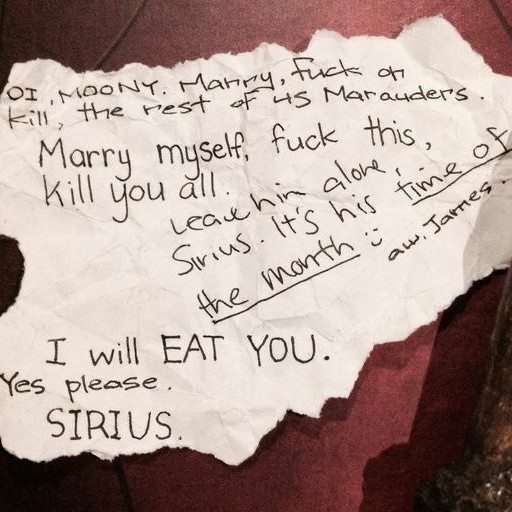 OI, MOONY. Marry, fuck or
kill, the rest of us Marauders.
Marry myself, fuck this,
kill you all.
Leave him alone,
Sirius. It's his time of
the month :)
aw, James.
I will EAT YOU.
Yes please.
SIRIUS.